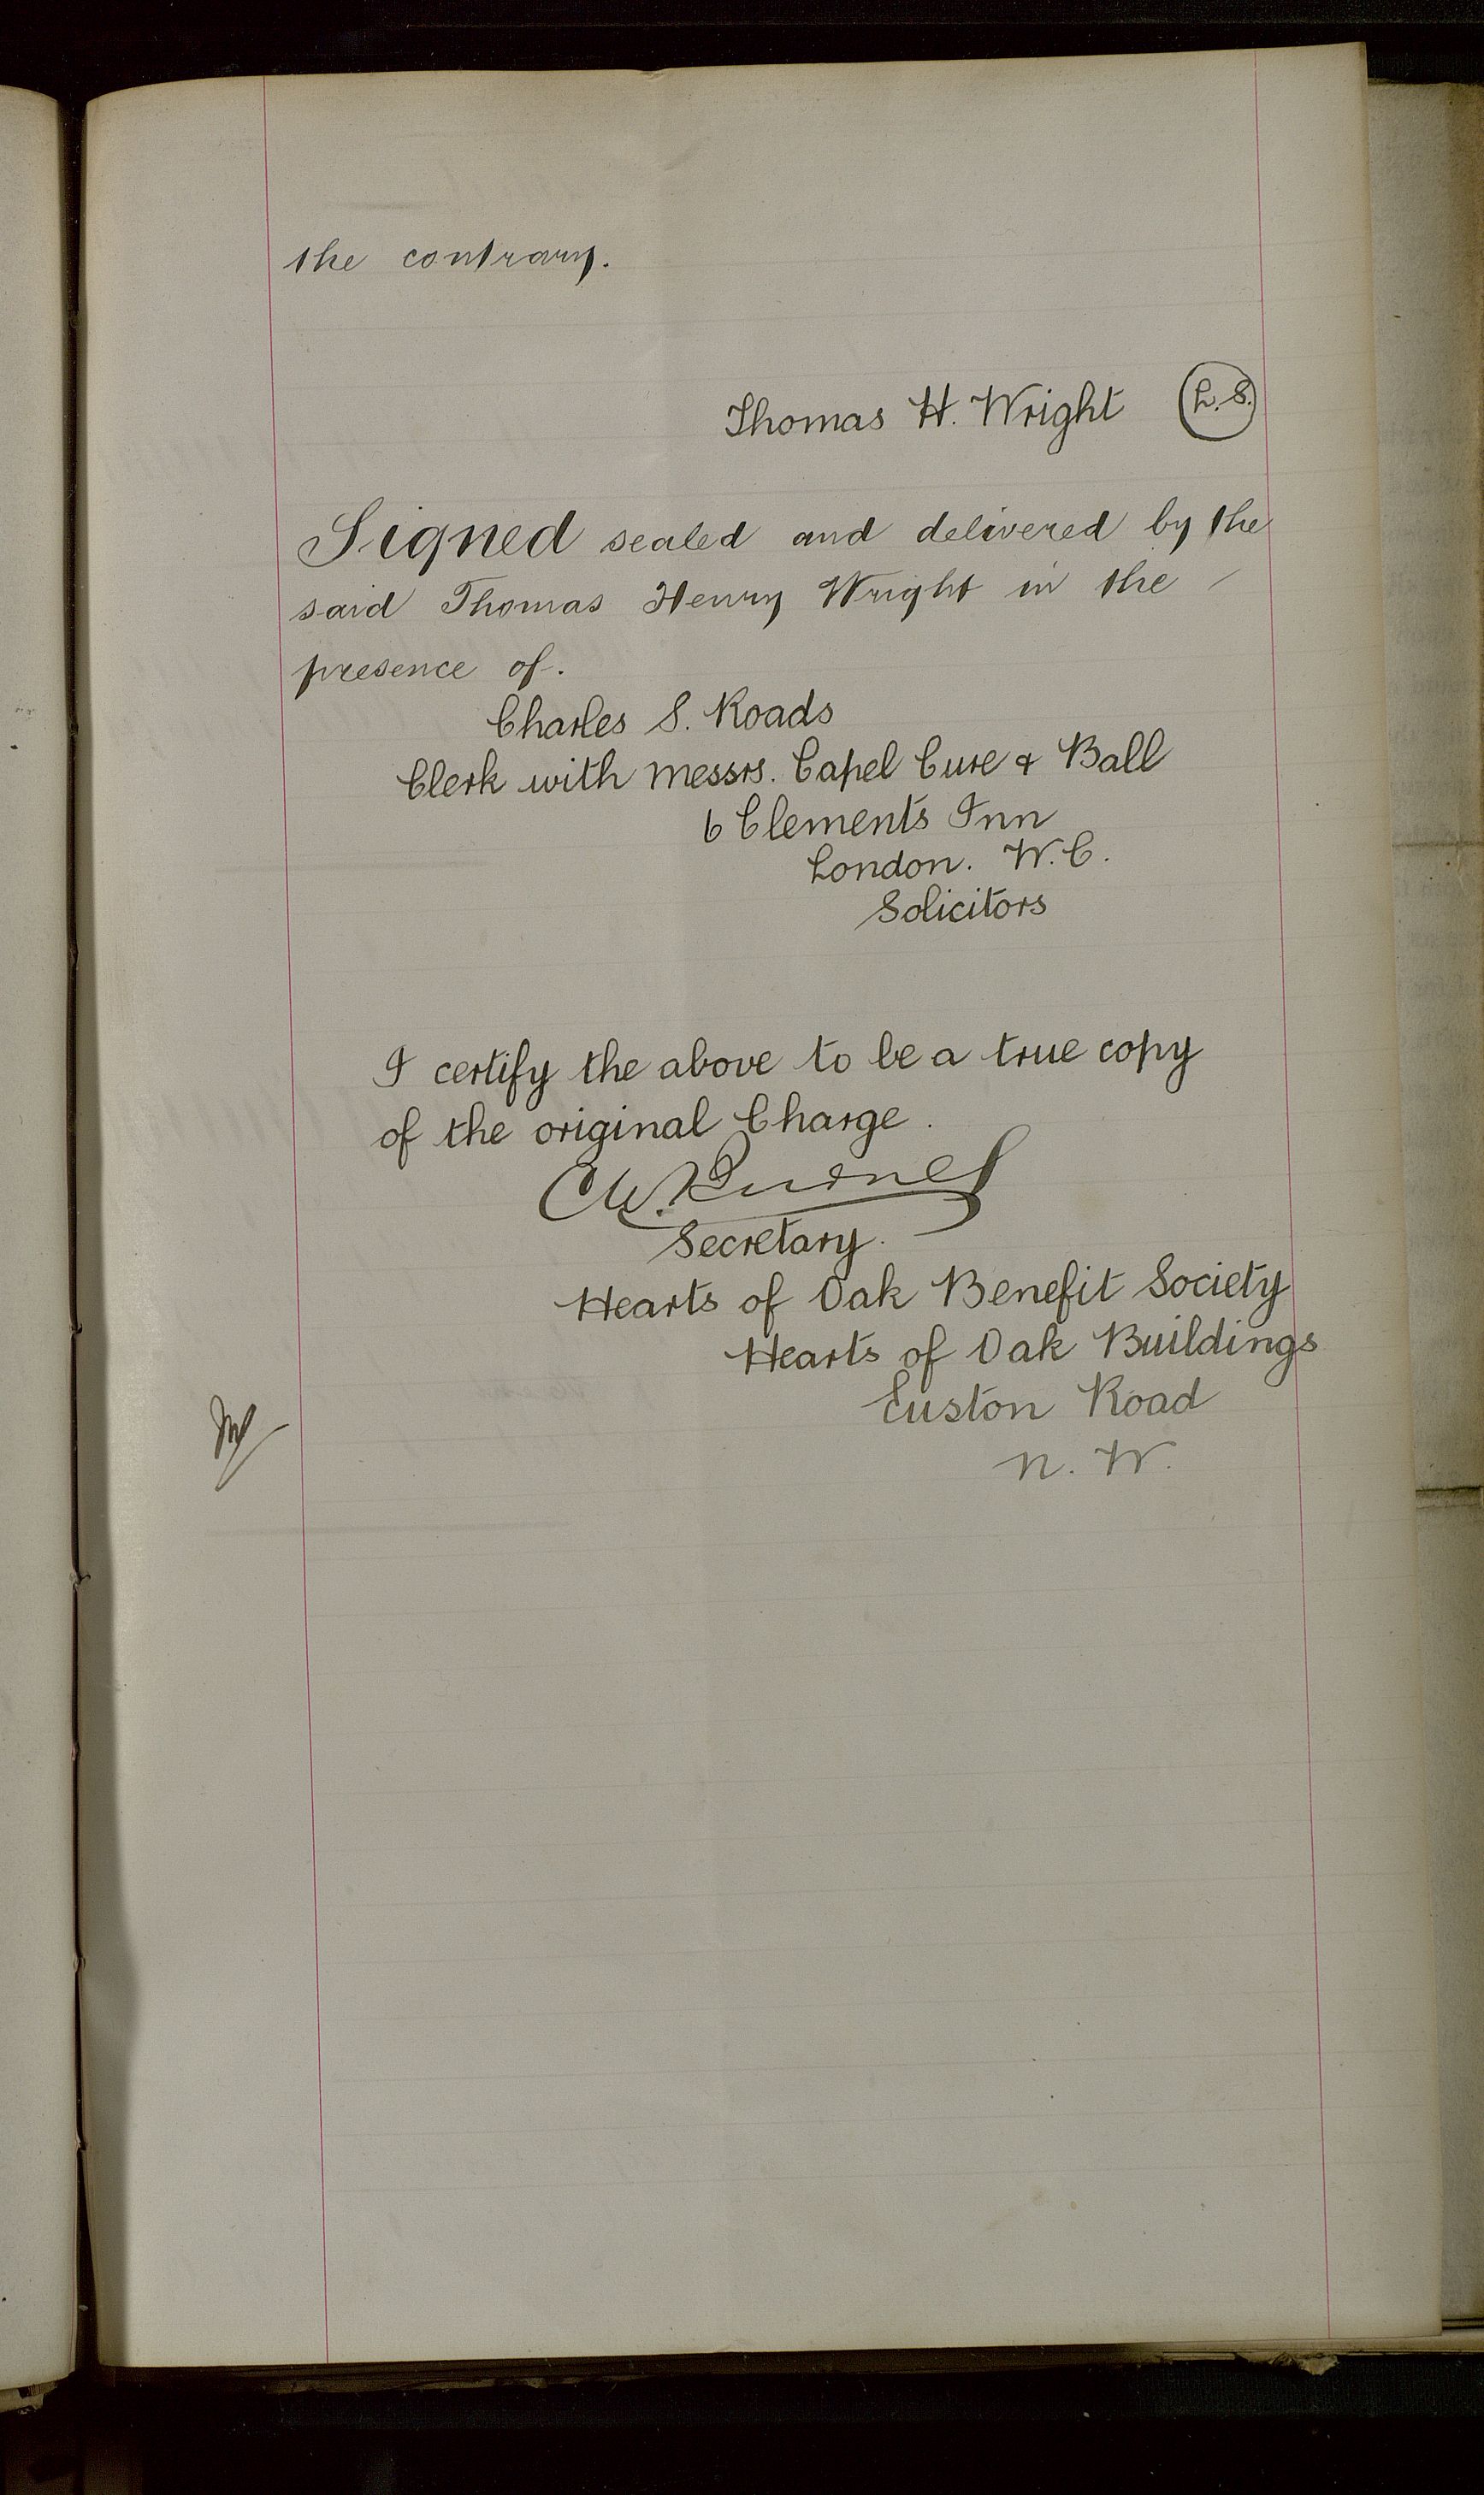 the contrary.
Thomas H. Wright L.S.
Signed sealed and delivered by the
said Thomas Henry Wright in the
presence of.
Charles S. Roads
Clerk with Messrs. Capel Cure & Ball
6 Clements Inn
London. W.C.
Solicitors
I certify the above to be a true copy
of the original Charge.
Secretary.
Hearts of Oak Benefit Society
Hearts of Oak Buildings
Euston Road
N. W.